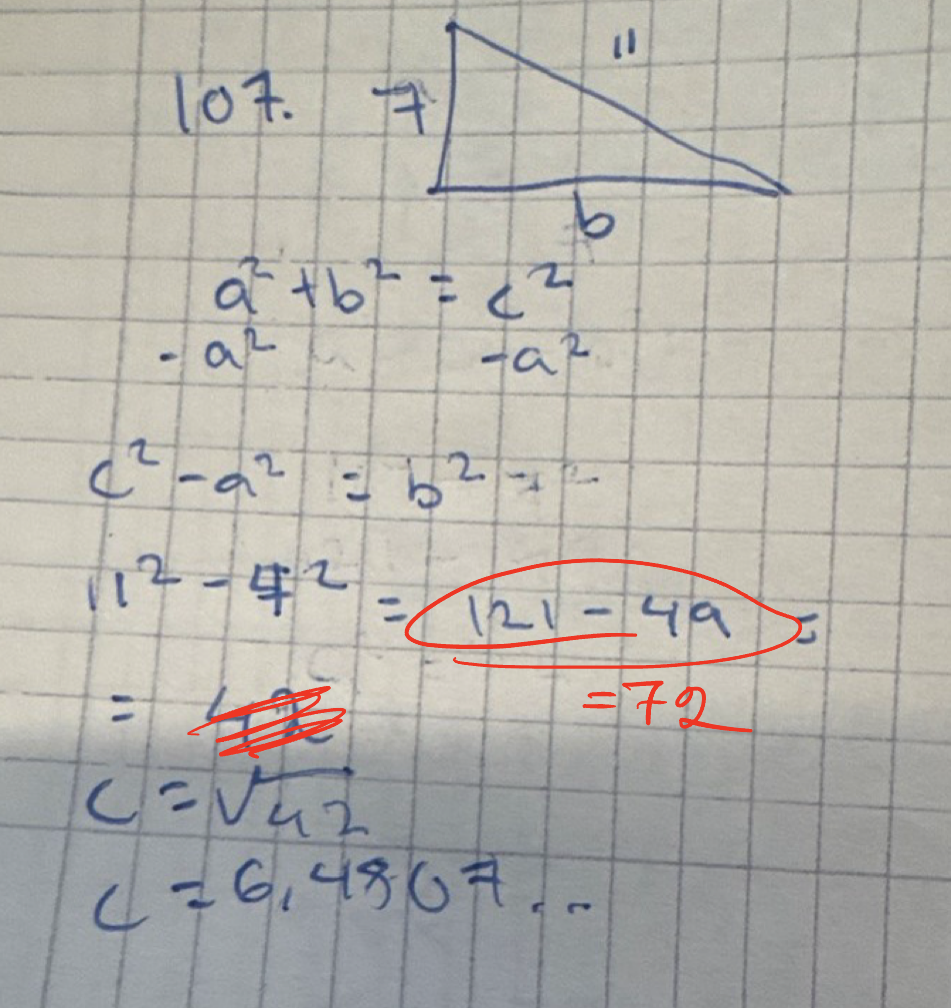 107. 7 11
b
a² + b² = c²
- a² -a²
c² - a² = b²
11² - 7² = 121 - 49 =
= 72
=
c = √42
c = 6,4807...